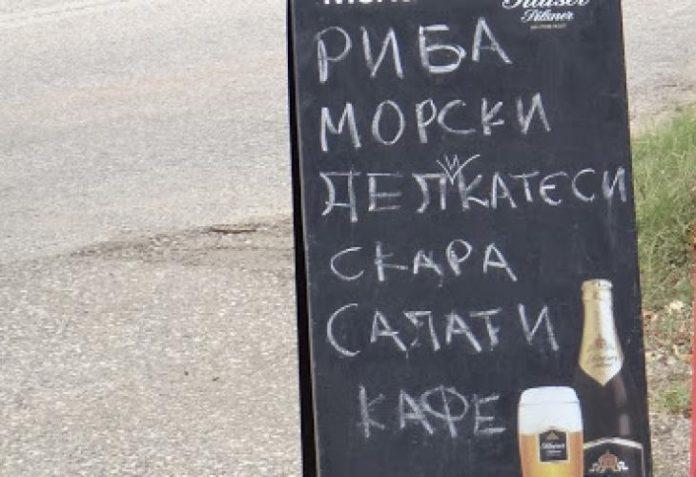 Pilsner
РИБА
МОРСКИ
ДЕЛИКАТЕСИ
СКАРА
САЛАТИ
КАФЕ